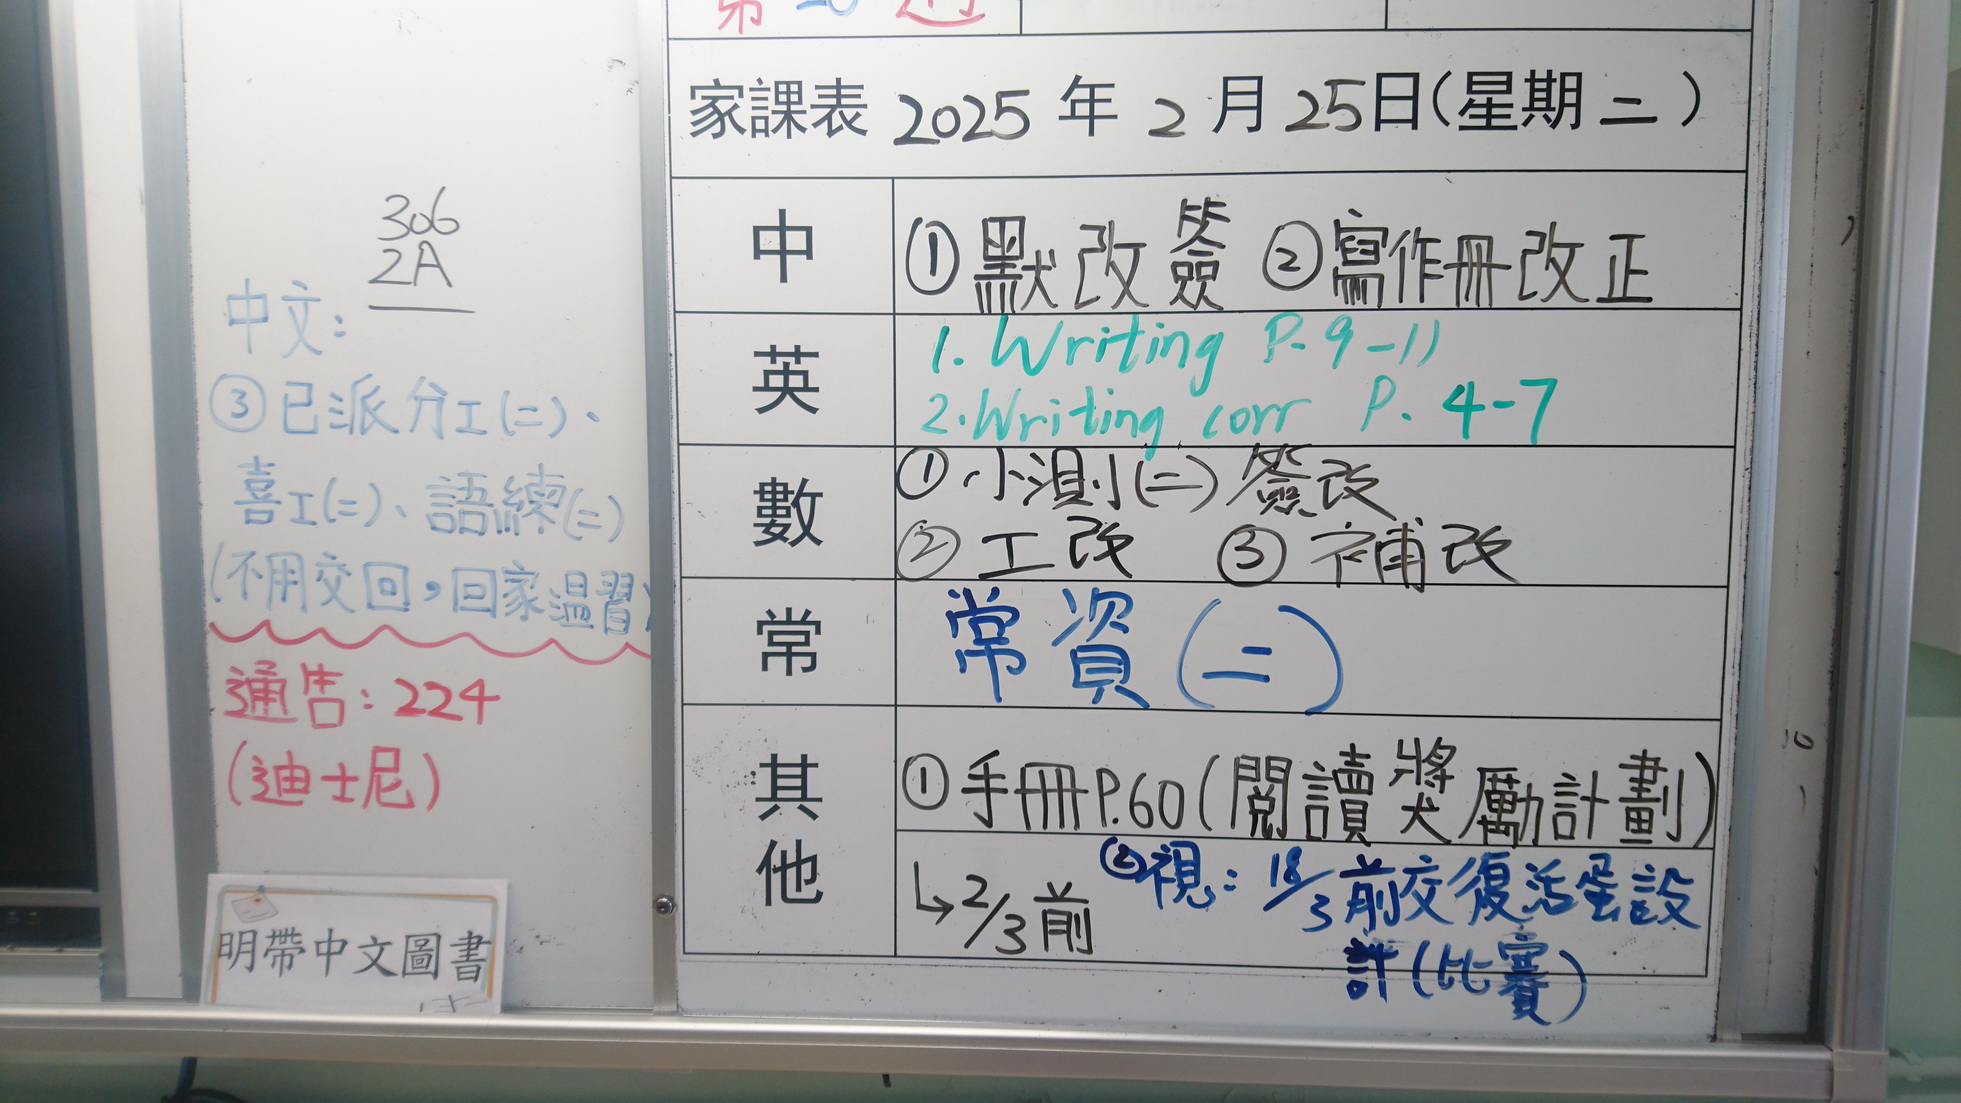 306
2A
中文：
③已派分工(二)、
喜工(二)、語練(二)
(不用交回，回家温習)
通告：224
(迪士尼)
明帶中文圖書
第20週
家課表 2025 年 2 月 25日(星期二)
中
①默改簽 ②寫作冊改正
英
1. Writing P. 9-11
2. Writing corr P. 4-7
數
①小測(二)簽改
②工改 ③補改
常
常資(二)
其他
①手冊P.60(閱讀獎勵計劃)
↳2/3前
②視：18/3前交復活蛋設
計(比賽)